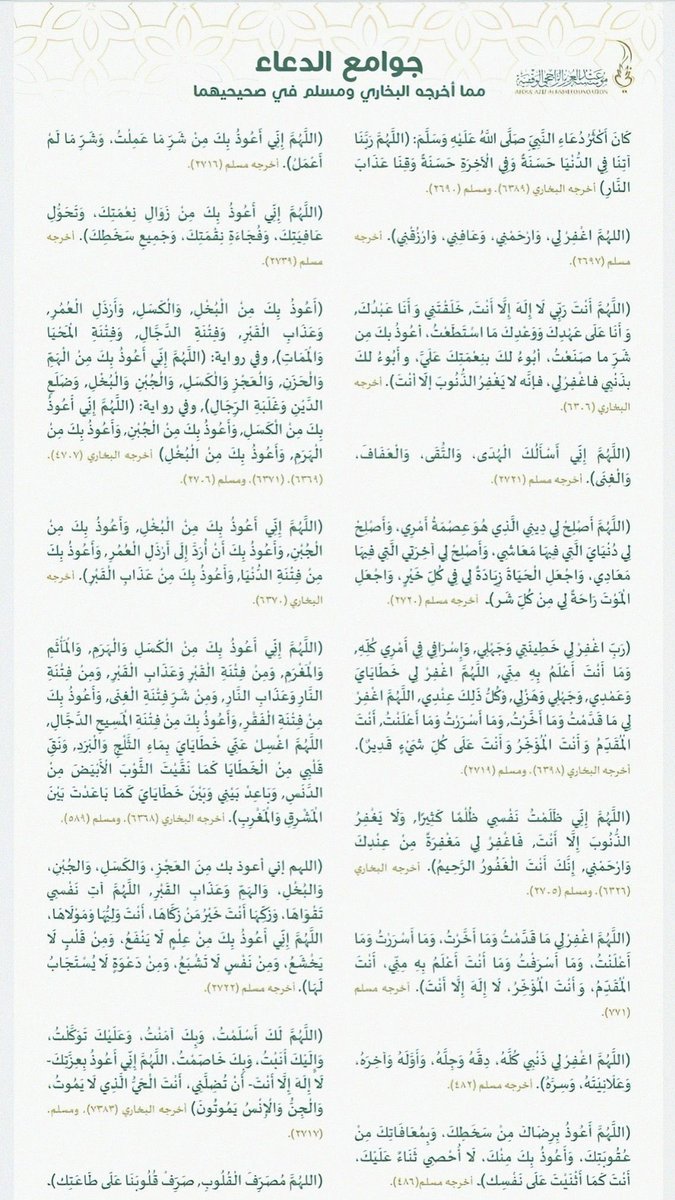 جوامع الدعاء
مما أخرجه البخاري ومسلم في صحيحيهما
مؤسسة عبدالعزيز الراجحي الوقفية
كَانَ أَكْثَرُ دُعَاءِ النَّبِيِّ صَلَّى اللهُ عَلَيْهِ وَسَلَّمَ: (اللَّهُمَّ رَبَّنَا
آتِنَا فِي الدُّنْيَا حَسَنَةً وَفِي الْآخِرَةِ حَسَنَةً وَقِنَا عَذَابَ
النَّارِ) أخرجه البخاري (٦٣٨٩). ومسلم (٢٦٩٠).
(اللهُمَّ اغْفِرْ لِي، وَارْحَمْنِي، وَعَافِنِي، وَارْزُقْنِي). أخرجه
مسلم (٢٦٩٧).
(اللَّهُمَّ أَنْتَ رَبِّي لَا إِلَهَ إِلَّا أَنْتَ, خَلَقْتَنِي وَأَنَا عَبْدُكَ,
وَأَنَا عَلَى عَهْدِكَ وَوَعْدِكَ مَا اسْتَطَعْتُ، أعُوذُ بكَ مِن
شَرِّ ما صَنَعْتُ، أَبُوءُ لكَ بنِعْمَتِكَ عَلَيَّ، وَأَبُوءُ لكَ
بذَنْبِي فاغْفِرْ لِي، فإنَّه لا يَغْفِرُ الذُّنُوبَ إلَّا أنْتَ). أخرجه
البخاري (٦٣٠٦).
(اللهُمَّ إِنِّي أَسْأَلُكَ الْهُدَى، وَالتُّقَى، وَالْعَفَافَ،
وَالْغِنَى). أخرجه مسلم (٢٧٢١).
(اللَّهُمَّ أَصْلِحْ لِي دِينِي الَّذِي هُوَ عِصْمَةُ أَمْرِي، وَأَصْلِحْ
لِي دُنْيَايَ الَّتي فِيهَا مَعَاشِي، وَأَصْلِحْ لِي آخِرَتي الَّتي فِيهَا
مَعَادِي، وَاجْعَلِ الْحَيَاةَ زِيَادَةً لي في كُلِّ خَيْرٍ، وَاجْعَلِ
الْمَوْتَ رَاحَةً لِي مِنْ كُلِّ شَر). أخرجه مسلم (٢٧٢٠).
(رَبِّ اغْفِرْ لِي خَطِيئَتِي وَجَهْلِي, وَإِسْرَافِي فِي أَمْرِي كُلِّهِ,
وَمَا أَنْتَ أَعْلَمُ بِهِ مِنِّي, اللَّهُمَّ اغْفِرْ لِي خَطَايَايَ
وَعَمْدِي, وَجَهْلِي وَهَزْلِي, وَكُلُّ ذَلِكَ عِنْدِي, اللَّهُمَّ اغْفِرْ
لِي مَا قَدَّمْتُ وَمَا أَخَّرْتُ, وَمَا أَسْرَرْتُ وَمَا أَعْلَنْتُ, أَنْتَ
الْمُقَدِّمُ وَأَنْتَ الْمُؤَخِّرُ وَأَنْتَ عَلَى كُلِّ شَيْءٍ قَدِيرٌ).
أخرجه البخاري (٦٣٩٨). ومسلم (٢٧١٩).
(اللَّهُمَّ إِنِّي ظَلَمْتُ نَفْسِي ظُلْمًا كَثِيرًا, وَلَا يَغْفِرُ
الذُّنُوبَ إِلَّا أَنْتَ, فَاغْفِرْ لِي مَغْفِرَةً مِنْ عِنْدِكَ
وَارْحَمْنِي, إِنَّكَ أَنْتَ الْغَفُورُ الرَّحِيمُ). أخرجه البخاري
(٦٣٢٦). ومسلم (٢٧٠٥).
(اللهُمَّ اغْفِرْ لِي مَا قَدَّمْتُ وَمَا أَخَّرْتُ، وَمَا أَسْرَرْتُ وَمَا
أَعْلَنْتُ، وَمَا أَسْرَفْتُ وَمَا أَنْتَ أَعْلَمُ بِهِ مِنِّي، أَنْتَ
الْمُقَدِّمُ، وَأَنْتَ الْمُؤَخِّرُ، لَا إِلَهَ إِلَّا أَنْتَ). أخرجه مسلم
(٧٧١).
(اللهُمَّ اغْفِرْ لِي ذَنْبِي كُلَّهُ، دِقَّهُ وَجِلَّهُ، وَأَوَّلَهُ وَآخِرَهُ،
وَعَلَانِيَتَهُ، وَسِرَّهُ). أخرجه مسلم (٤٨٢).
(اللَّهُمَّ أَعُوذُ بِرِضَاكَ مِنْ سَخَطِكَ، وَبِمُعَافَاتِكَ مِنْ
عُقُوبَتِكَ، وَأَعُوذُ بكَ مِنْكَ، لَا أُحْصِي ثَنَاءً عَلَيْكَ،
أَنْتَ كَمَا أَثْنَيْتَ عَلَى نَفْسِك). أخرجه مسلم (٤٨٦).
(اللهُمَّ إِنِّي أَعُوذُ بِكَ مِنْ شَرِّ مَا عَمِلْتُ، وَشَرِّ مَا لَمْ
أَعْمَلْ). أخرجه مسلم (٢٧١٦).
(اللهُمَّ إِنِّي أَعُوذُ بِكَ مِنْ زَوَالِ نِعْمَتِكَ، وَتَحَوُّلِ
عَافِيَتِكَ، وَفُجَاءَةِ نِقْمَتِكَ، وَجَمِيعِ سَخَطِكَ). أخرجه
مسلم (٢٧٣٩).
(أَعُوذُ بِكَ مِنْ الْبُخْلِ, وَالْكَسَلِ, وَأَرْذَلِ الْعُمُرِ,
وَعَذَابِ الْقَبْرِ, وَفِتْنَةِ الدَّجَّالِ, وَفِتْنَةِ الْمَحْيَا
وَالْمَمَاتِ), وفي رواية: (اللَّهُمَّ إِنِّي أَعُوذُ بِكَ مِنْ الْهَمِّ
وَالْحَزَنِ, وَالْعَجْزِ وَالْكَسَلِ, وَالْجُبْنِ وَالْبُخْلِ, وَضَلَعِ
الدَّيْنِ وَغَلَبَةِ الرِّجَالِ), وفي رواية: (اللَّهُمَّ إِنِّي أَعُوذُ
بِكَ مِنْ الْكَسَلِ, وَأَعُوذُ بِكَ مِنْ الْجُبْنِ, وَأَعُوذُ بِكَ مِنْ
الْهَرَمِ, وَأَعُوذُ بِكَ مِنْ الْبُخْلِ) أخرجه البخاري (٤٧٠٧).
(٦٣٦٩). (٦٣٧١). ومسلم (٢٧٠٦).
(اللَّهُمَّ إِنِّي أَعُوذُ بِكَ مِنْ الْبُخْلِ, وَأَعُوذُ بِكَ مِنْ
الْجُبْنِ, وَأَعُوذُ بِكَ أَنْ أُرَدَّ إِلَى أَرْذَلِ الْعُمُرِ, وَأَعُوذُ بِكَ
مِنْ فِتْنَةِ الدُّنْيَا, وَأَعُوذُ بِكَ مِنْ عَذَابِ الْقَبْرِ). أخرجه
البخاري (٦٣٧٠).
(اللَّهُمَّ إِنِّي أَعُوذُ بِكَ مِنْ الْكَسَلِ وَالْهَرَمِ, وَالْمَأْثَمِ
وَالْمَغْرَمِ, وَمِنْ فِتْنَةِ الْقَبْرِ وَعَذَابِ الْقَبْرِ, وَمِنْ فِتْنَةِ
النَّارِ وَعَذَابِ النَّارِ, وَمِنْ شَرِّ فِتْنَةِ الْغِنَى, وَأَعُوذُ بِكَ
مِنْ فِتْنَةِ الْفَقْرِ, وَأَعُوذُ بِكَ مِنْ فِتْنَةِ الْمَسِيحِ الدَّجَّالِ,
اللَّهُمَّ اغْسِلْ عَنِّي خَطَايَايَ بِمَاءِ الثَّلْجِ وَالْبَرَدِ, وَنَقِّ
قَلْبِي مِنْ الْخَطَايَا كَمَا نَقَّيْتَ الثَّوْبَ الْأَبْيَضَ مِنْ
الدَّنَسِ, وَبَاعِدْ بَيْنِي وَبَيْنَ خَطَايَايَ كَمَا بَاعَدْتَ بَيْنَ
الْمَشْرِقِ وَالْمَغْرِبِ). أخرجه البخاري (٦٣٦٨). ومسلم (٥٨٩).
(اللهم إني أعوذ بك مِنَ العَجْزِ، وَالكَسَلِ، وَالجُبْنِ،
وَالبُخْلِ، وَالهَمِّ وَعَذَابِ القَبْرِ, اللَّهُمَّ آتِ نَفْسِي
تَقْوَاهَا، وَزَكِّهَا أَنْتَ خَيْرُ مَن زَكَّاهَا، أَنْتَ وَلِيُّهَا وَمَوْلَاهَا،
اللَّهُمَّ إِنِّي أَعُوذُ بِكَ مِنْ عِلْمٍ لَا يَنْفَعُ، وَمِنْ قَلْبٍ لَا
يَخْشَعُ، وَمِنْ نَفْسٍ لَا تَشْبَعُ، وَمِنْ دَعْوَةٍ لَا يُسْتَجَابُ
لَهَا). أخرجه مسلم (٢٧٢٢).
(اللَّهُمَّ لَكَ أَسْلَمْتُ، وَبِكَ آمَنْتُ، وَعَلَيْكَ تَوَكَّلْتُ،
وَإِلَيْكَ أَنَبْتُ، وَبِكَ خَاصَمْتُ، اللَّهُمَّ إِنِّي أَعُوذُ بِعِزَّتِكَ-
لَا إِلَهَ إِلَّا أَنْتَ- أَنْ تُضِلَّنِي، أَنْتَ الْحَيُّ الَّذِي لَا يَمُوتُ،
وَالْجِنُّ وَالْإِنْسُ يَمُوتُونَ) أخرجه البخاري (٧٣٨٣). ومسلم.
(٢٧١٧).
(اللهُمَّ مُصَرِّفَ الْقُلُوبِ, صَرِّفْ قُلُوبَنَا عَلَى طَاعَتِك).